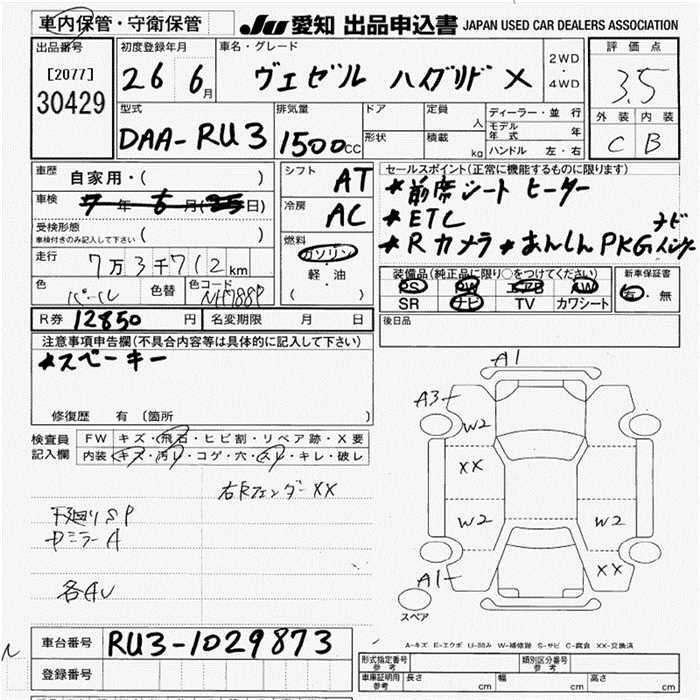 車内保管・守衛保管
JU 愛知 出品申込書 JAPAN USED CAR DEALERS ASSOCIATION
出品番号
[2077]
30429
初度登録年月
26 6月
車名・グレード
ヴェゼル ハイブリド X
2WD
・
4WD
評価点
3.5
外装 内装
C B
型式
DAA-RU3
排気量
1500cc
ドア
形状
定員 人
積載 kg
ディーラー・並行
モデル年式 年
ハンドル 左・右
車歴
自家用・( )
車検
7年6月(25日)
受検形態
車検付きのみ記入して下さい ( )
走行
7万3千712km
色
パール
色替
色コード
NH788P
シフト
AT
冷房
AC
燃料
ガソリン
・
軽・油
( )
セールスポイント(正常に機能するものに限ります)
*前席シートヒーター
*ETC
*Rカメラ *あんしんPKG ナビ
インター
装備品(純正品に限り○をつけてください)
PS PW エアB AW
SR ナビ TV カワシート
新車保証書
有・無
後日品
R券 12850円
名変期限 月 日
注意事項申告欄(不具合内容等は具体的に記入して下さい)
*スペーキー
修復歴 有 (箇所 )
検査員記入欄
FW キズ・飛石・ヒビ割・リペア跡・X要
内装 キズ・汚レ・コゲ・穴・スレ・キレ・破レ
右Fフェンダー XX
下廻りSP
ミラーA
各AU
A1
A3
W2
XX
W2
W2
A1
XX
スペア
A-キズ E-エクボ U-凹み W-補修跡 S-サビ C-腐食 XX-交換済
車台番号
RU3-1029873
登録番号
形式指定番号
参考
類別区分番号
参考
車庫証明用
参考
長さ cm
幅 cm
高さ cm